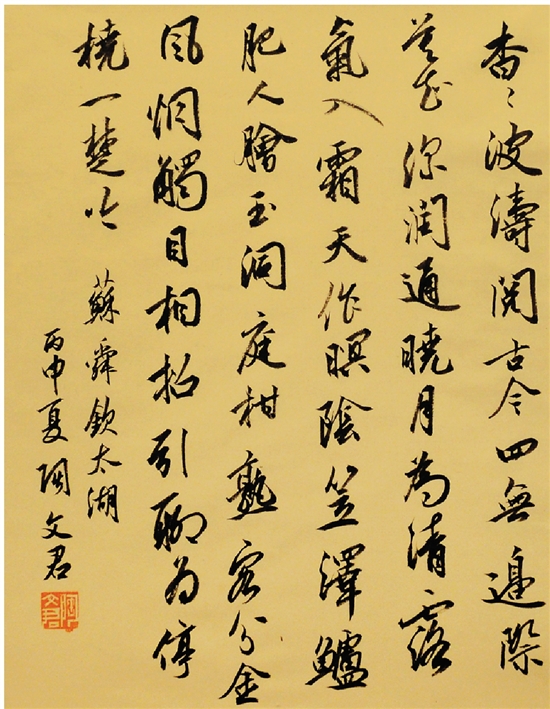 杳〻波濤閱古今四無邊際
莫知深潤通曉月為清露
氣入霜天作暝陰笠澤鱸
肥人膾玉洞庭柑熟客分金
風烟觸目相招引聊為停
橈一楚吟
蘇舜欽太湖
丙申夏陶文君